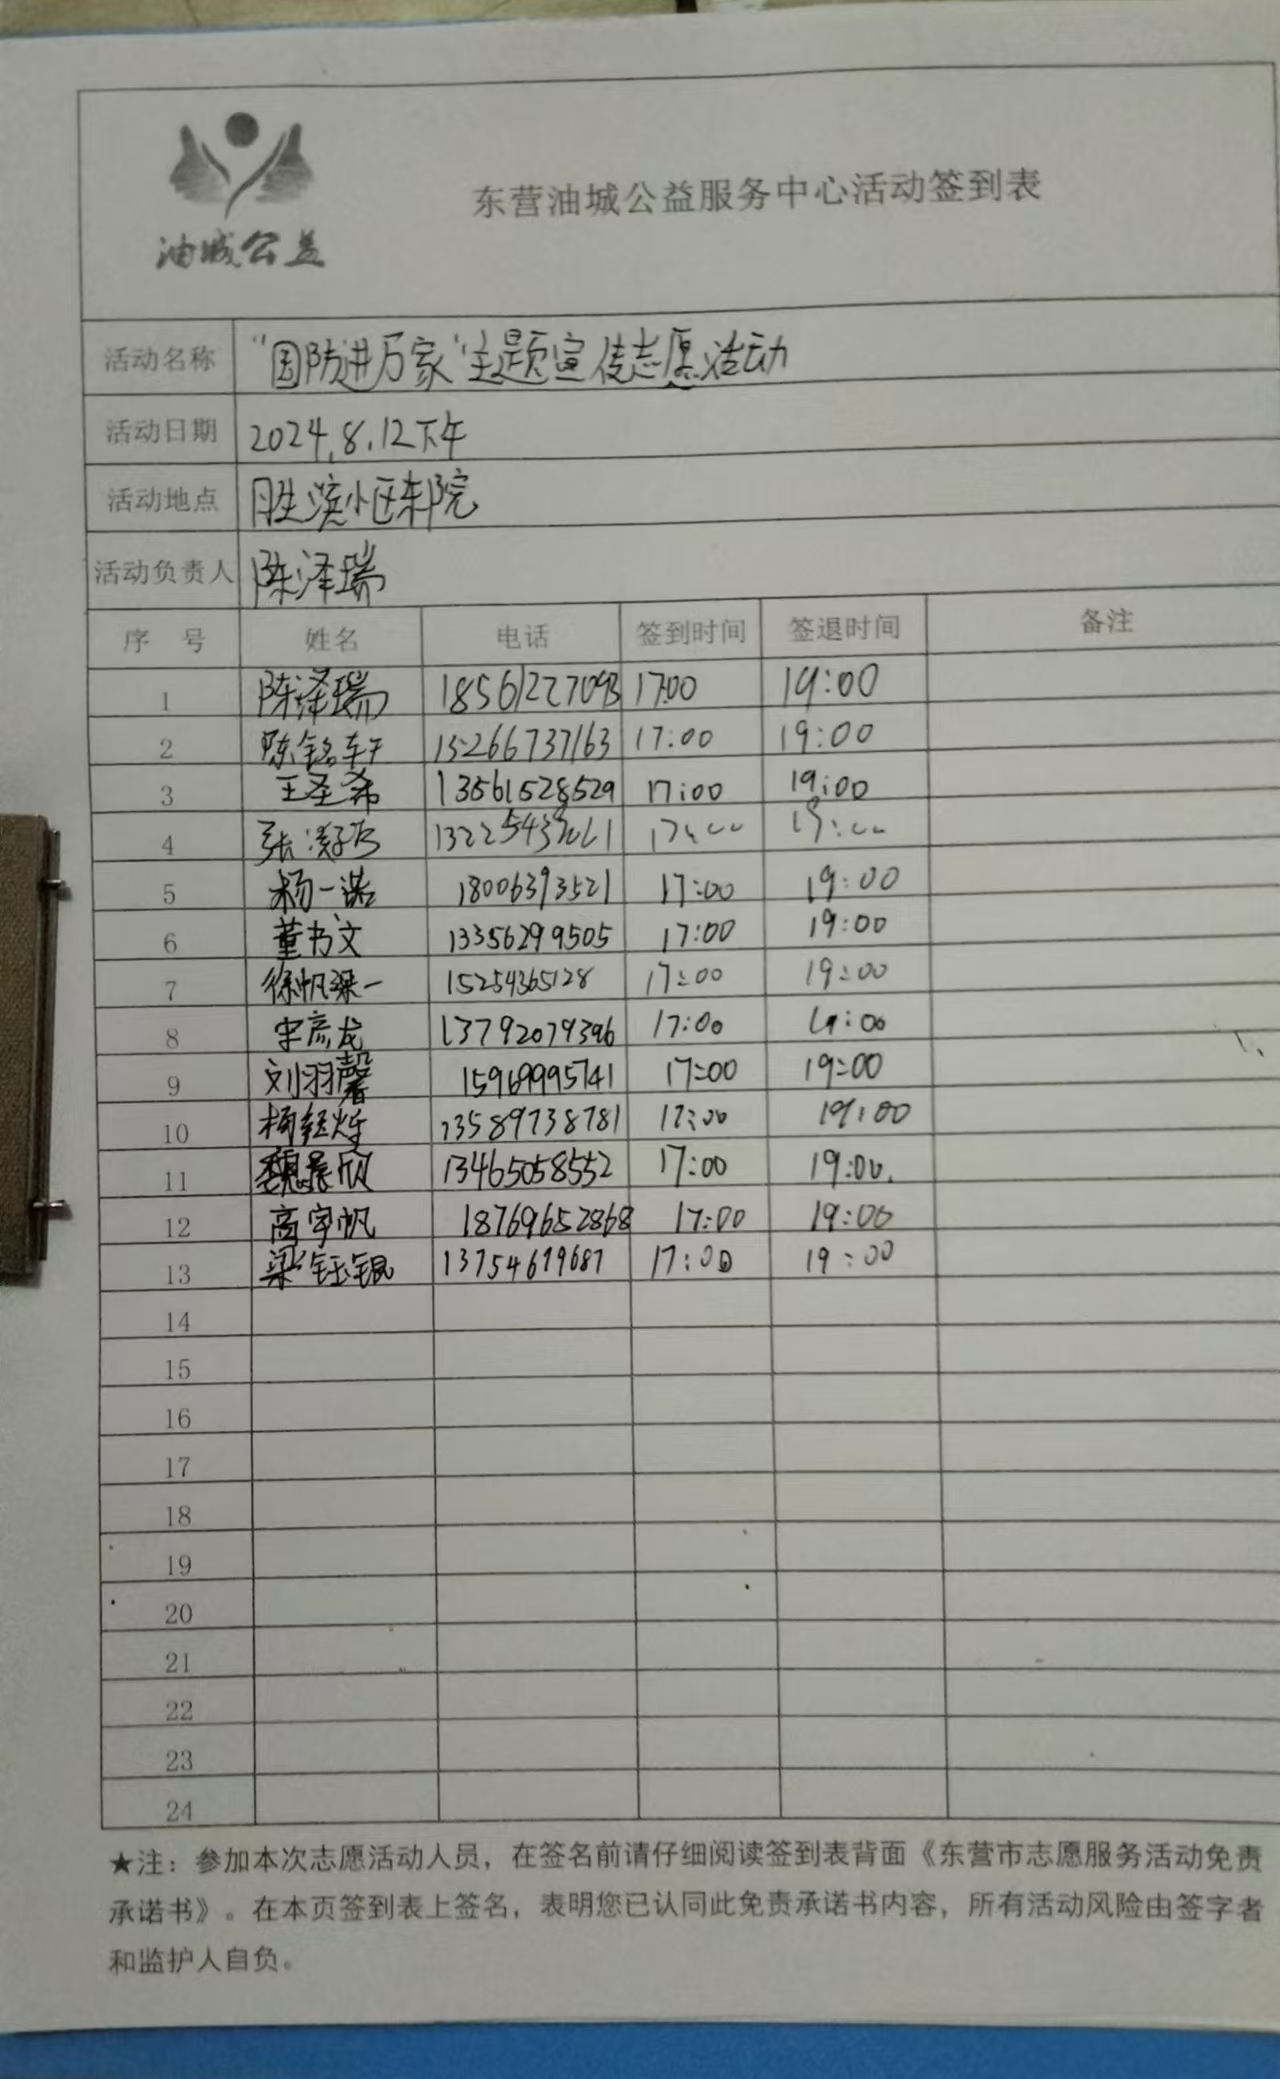 油城公益
东营油城公益服务中心活动签到表
活动名称 "国防进万家"主题宣传志愿活动
活动日期 2024.8.12下午
活动地点 胜滨小区东院
活动负责人 陈泽瑞
序 号 姓名 电话 签到时间 签退时间 备注
1 陈泽瑞 18561227093 17:00 19:00
2 陈铭轩 15266737163 17:00 19:00
3 王圣希 13561528529 17:00 19:00
4 张 17:00 19:00
5 杨一诺 18006393521 17:00 19:00
6 董书文 13356299505 17:00 19:00
7 徐帆梁一 15254365128 17:00 19:00
8 宋彦龙 13792079396 17:00 19:00
9 刘羽馨 15969995741 17:00 19:00
10 13589738781 17:00 19:00
11 魏景欣 13465058552 17:00 19:00.
12 高宇帆 18769652868 17:00 19:00
13 梁钰锟 13754679687 17:00 19:00
14
15
16
17
18
19
20
21
22
23
24
★注：参加本次志愿活动人员，在签名前请仔细阅读签到表背面《东营市志愿服务活动免责
承诺书》。在本页签到表上签名，表明您已认同此免责承诺书内容，所有活动风险由签字者
和监护人自负。